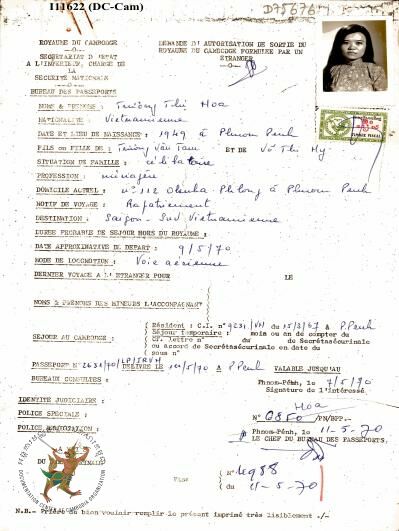 111622 (DC-Cam)
D75676
ROYAUME DU CAMBODGE
SECRETARIAT D'ETAT
A L'INTERIEUR, CHARGE DE
LA
SECURITE NATIONALE
BUREAU DES PASSEPORTS
DEMANDE D'AUTORISATION DE SORTIE DU
ROYAUME DU CAMBODGE FORMULEE PAR UN
ETRANGER
NOMS & PRENOMS : Trương Thị Hoa
NATIONALITE : Vietnamienne
DATE ET LIEU DE NAISSANCE : 1949 à Phnom Penh
FILS ou FILLE DE : Trương Văn Tam ET DE Võ Thị Mỹ
SITUATION DE FAMILLE : célibataire
PROFESSION : ménagère
DOMICILE ACTUEL : n° 112 Phlong à Phnom Penh
MOTIF DE VOYAGE : Rapatriement
DESTINATION : Saigon - Sud Vietnamienne
DUREE PROBABLE DE SEJOUR HORS DU ROYAUME :
DATE APPROXIMATIVE DU DEPART : 9/5/70
MODE DE LOCOMOTION : Voie aérienne
DERNIER VOYAGE A L'ETRANGER POUR LE
NOMS & PRENOMS DES MINEURS L'ACCOMPAGNANT
SEJOUR AU CAMBODGE :
Résident : C.I. n° 9231/VN du 15/3/67 à P.Penh
Séjour temporaire : mois ou an de compter du
CF. lettre n° du de Secrétsécurinale
ou Accord de Secrétsécurinale en date du
sous n°
PASSEPORT N° 2631/70/LP/SRVN DELIVRE LE 1er/5/70 à P.Penh VALABLE JUSQU'AU
BUREAUX CONSULTES :
Phnom-Pénh, le 7/5/70
Signature de l'intéressé
Hoa
IDENTITE JUDICIAIRE :
POLICE SPECIALE :
N° 6850/PN/BPP.
Phnom-Pénh, le 11-5-70
LE CHEF DU BUREAU DES PASSEPORTS,
Visa
N° 4988
du 11-5-70
DOCUMENTATION CENTER OF CAMBODIA ORGANIZATION
N.B.- Prière de bien vouloir remplir le présent imprimé très lisiblement ./-